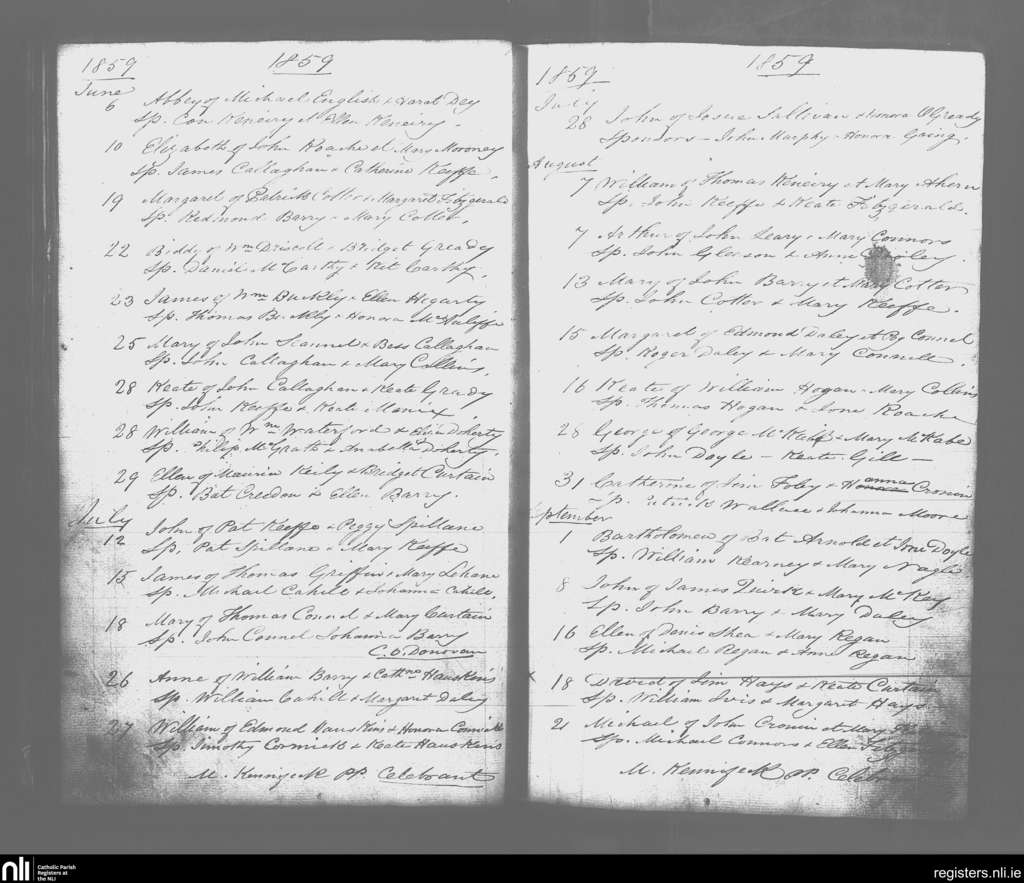 1859
1859
June
6 Abbey of Michael English & Harat Dey
Sp. Con Keneiry et Ellen Keneiry.
10 Elizabeth of John Roache et Mary Moroney
Sp. James Callaghan & Catherine Keeffe.
19 Margaret of Patrick Cotter & Margaret Fitzgerald
Sp. Redmond Barry & Mary Cotter.
22 Biddy of Wm Driscoll & Bridget Gready
Sp. Daniel McCarthy & Kit Carthy.
23 James of Wm Buckley & Ellen Hegarty
Sp. Thomas & Honora McAuliffe
25 Mary of John Scannel & Bess Callaghan
Sp. John Callaghan & Mary Collins.
28 Keate of John Callaghan & Keate Grady
Sp. John Keeffe & Keate
28 William of Wm Waterford & Doherty
Sp. Philip McGrath & Doherty.
29 Ellen of Maurice Keily & Bridget Curtain
Sp. Bat Creedon & Ellen Barry.
July
12 John of Pat Keeffe & Peggy Spillane
Sp. Pat Spillane & Mary Keeffe
15 James of Thomas Griffin & Mary Lehane
Sp. Michael Cahill & Johanna Cahill.
18 Mary of Thomas Connel & Mary Curtain
Sp. John Connel Johanna Barry
C. O. Donovan
26 Anne of William Barry & Cathne Hauskins
Sp. William Cahill & Margaret Daley
27 William of Edmond Hauskins & Honora Cormick
Sp. Timothy Cormick & Keate Hauskins
M. Kennifeck PP. Celebrant
1859
1859
July
28 John of Sullivan & Honora OGready
Sponsors - John Murphy & Honora
August
7 William of Thomas Keneiry et Mary Ahern
Sp. John Keeffe & Keate Fitzgerald.
7 Arthur of John Leary & Mary Connors
Sp. John Gleeson & Anne
13 Mary of John Barry et Mary Cotter
Sp. John Cotter & Mary Keeffe.
15 Margaret of Edmond Daley et Peg Connel
Sp. Roger Daley & Mary Connell.
16 Keate of William Hogan & Mary Collins
Sp. Thomas Hogan & Roache
28 George of George McKeiff & Mary McKabe
Sp. John Doyle - Keate Gill -
31 Catherine of Jim Foley & Hanna Cronin
Sp. Patrick Wallace & Johanna Moore
September
1 Bartholomew of Bat Arnold et Doyle
Sp. William Kearney & Mary Nagle.
8 John of James Quirk & Mary McKey
Sp. John Barry & Mary Daley
16 Ellen of Denis Shea & Mary Regan
Sp. Michael Regan & Anne Regan
18 David of Jim Hays & Keate Curtain
Sp. William Ivis & Margaret Hays
21 Michael of John Cronin et Mary
Sp. Michael Connors & Ellen
M. Kennifeck PP.
nli
Catholic Parish
Registers at
the NLI
registers.nli.ie